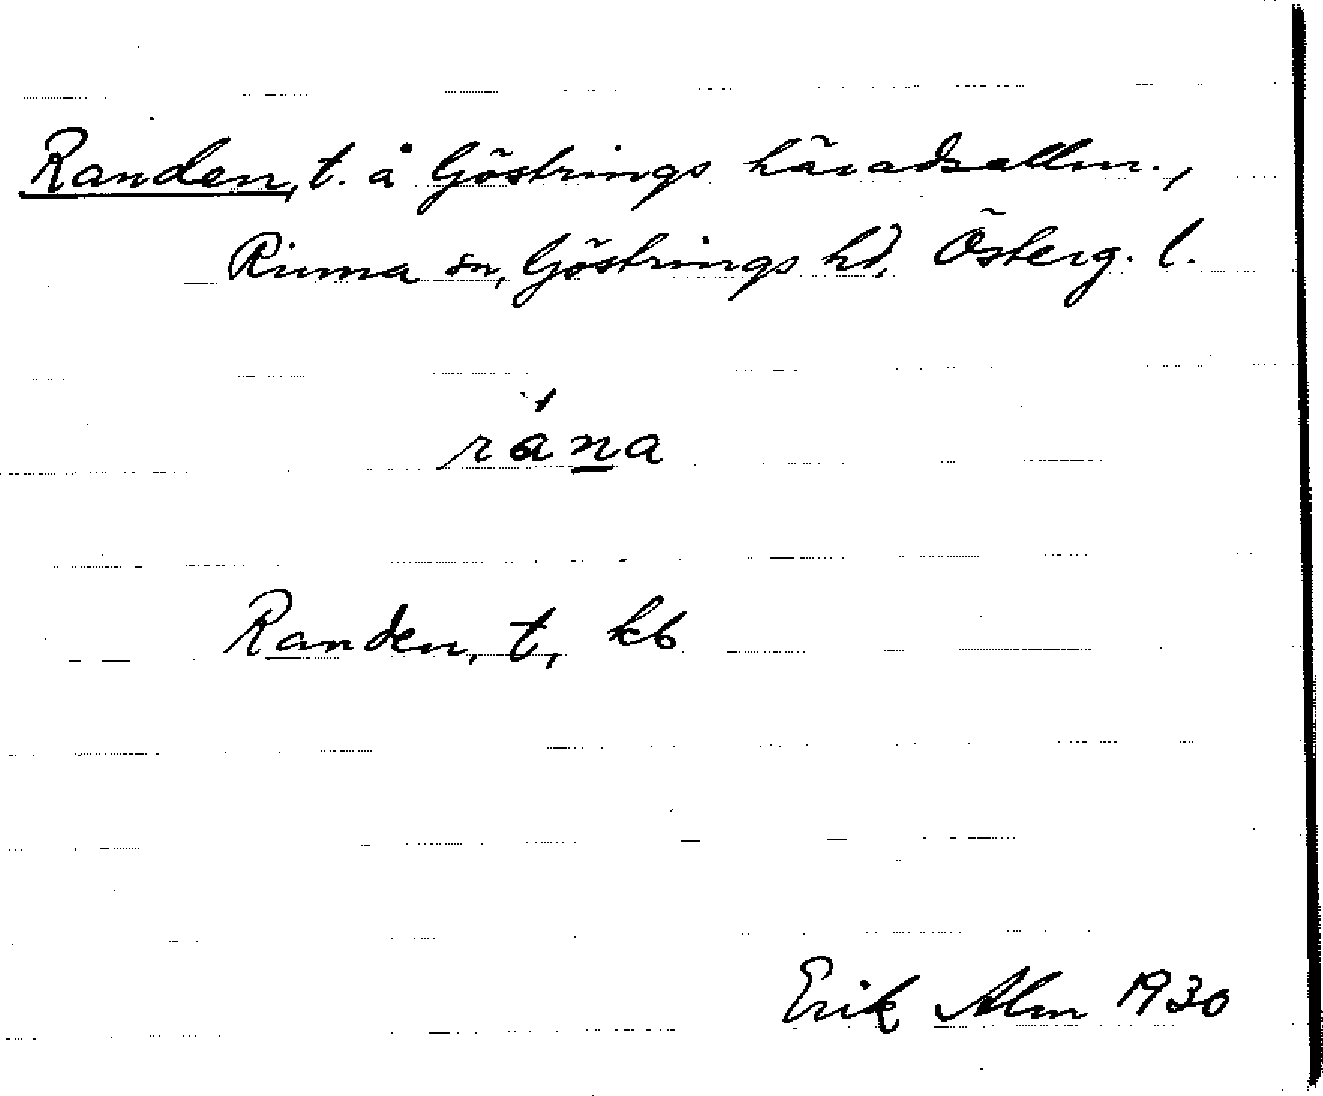 Randen, t. å Göstrings häradsallm.,
Rinna sn, Göstrings hd, Österg. l.
rána
Randen, t, kb
Erik Alm 1930